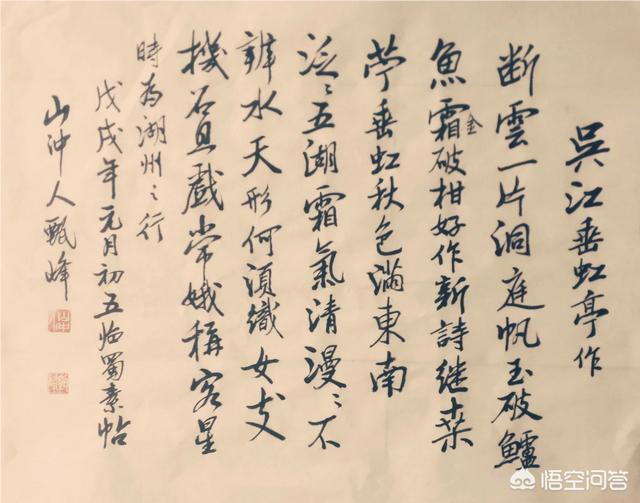 吳江垂虹亭作
断雲一片洞庭帆玉破鱸
魚霜金破柑好作新詩继桒
苧垂虹秋色滿東南
泛〻五湖霜氣清漫〻不
辨水天形何湏織女支
機石且戲常娥稱客星
時為湖州〻行
戊戌年元月初五临蜀素帖
山沖人甄峰
悟空问答